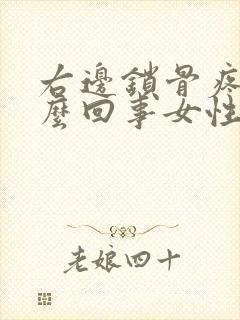 右邊鎖骨疼
麼回事女性
老娘四十